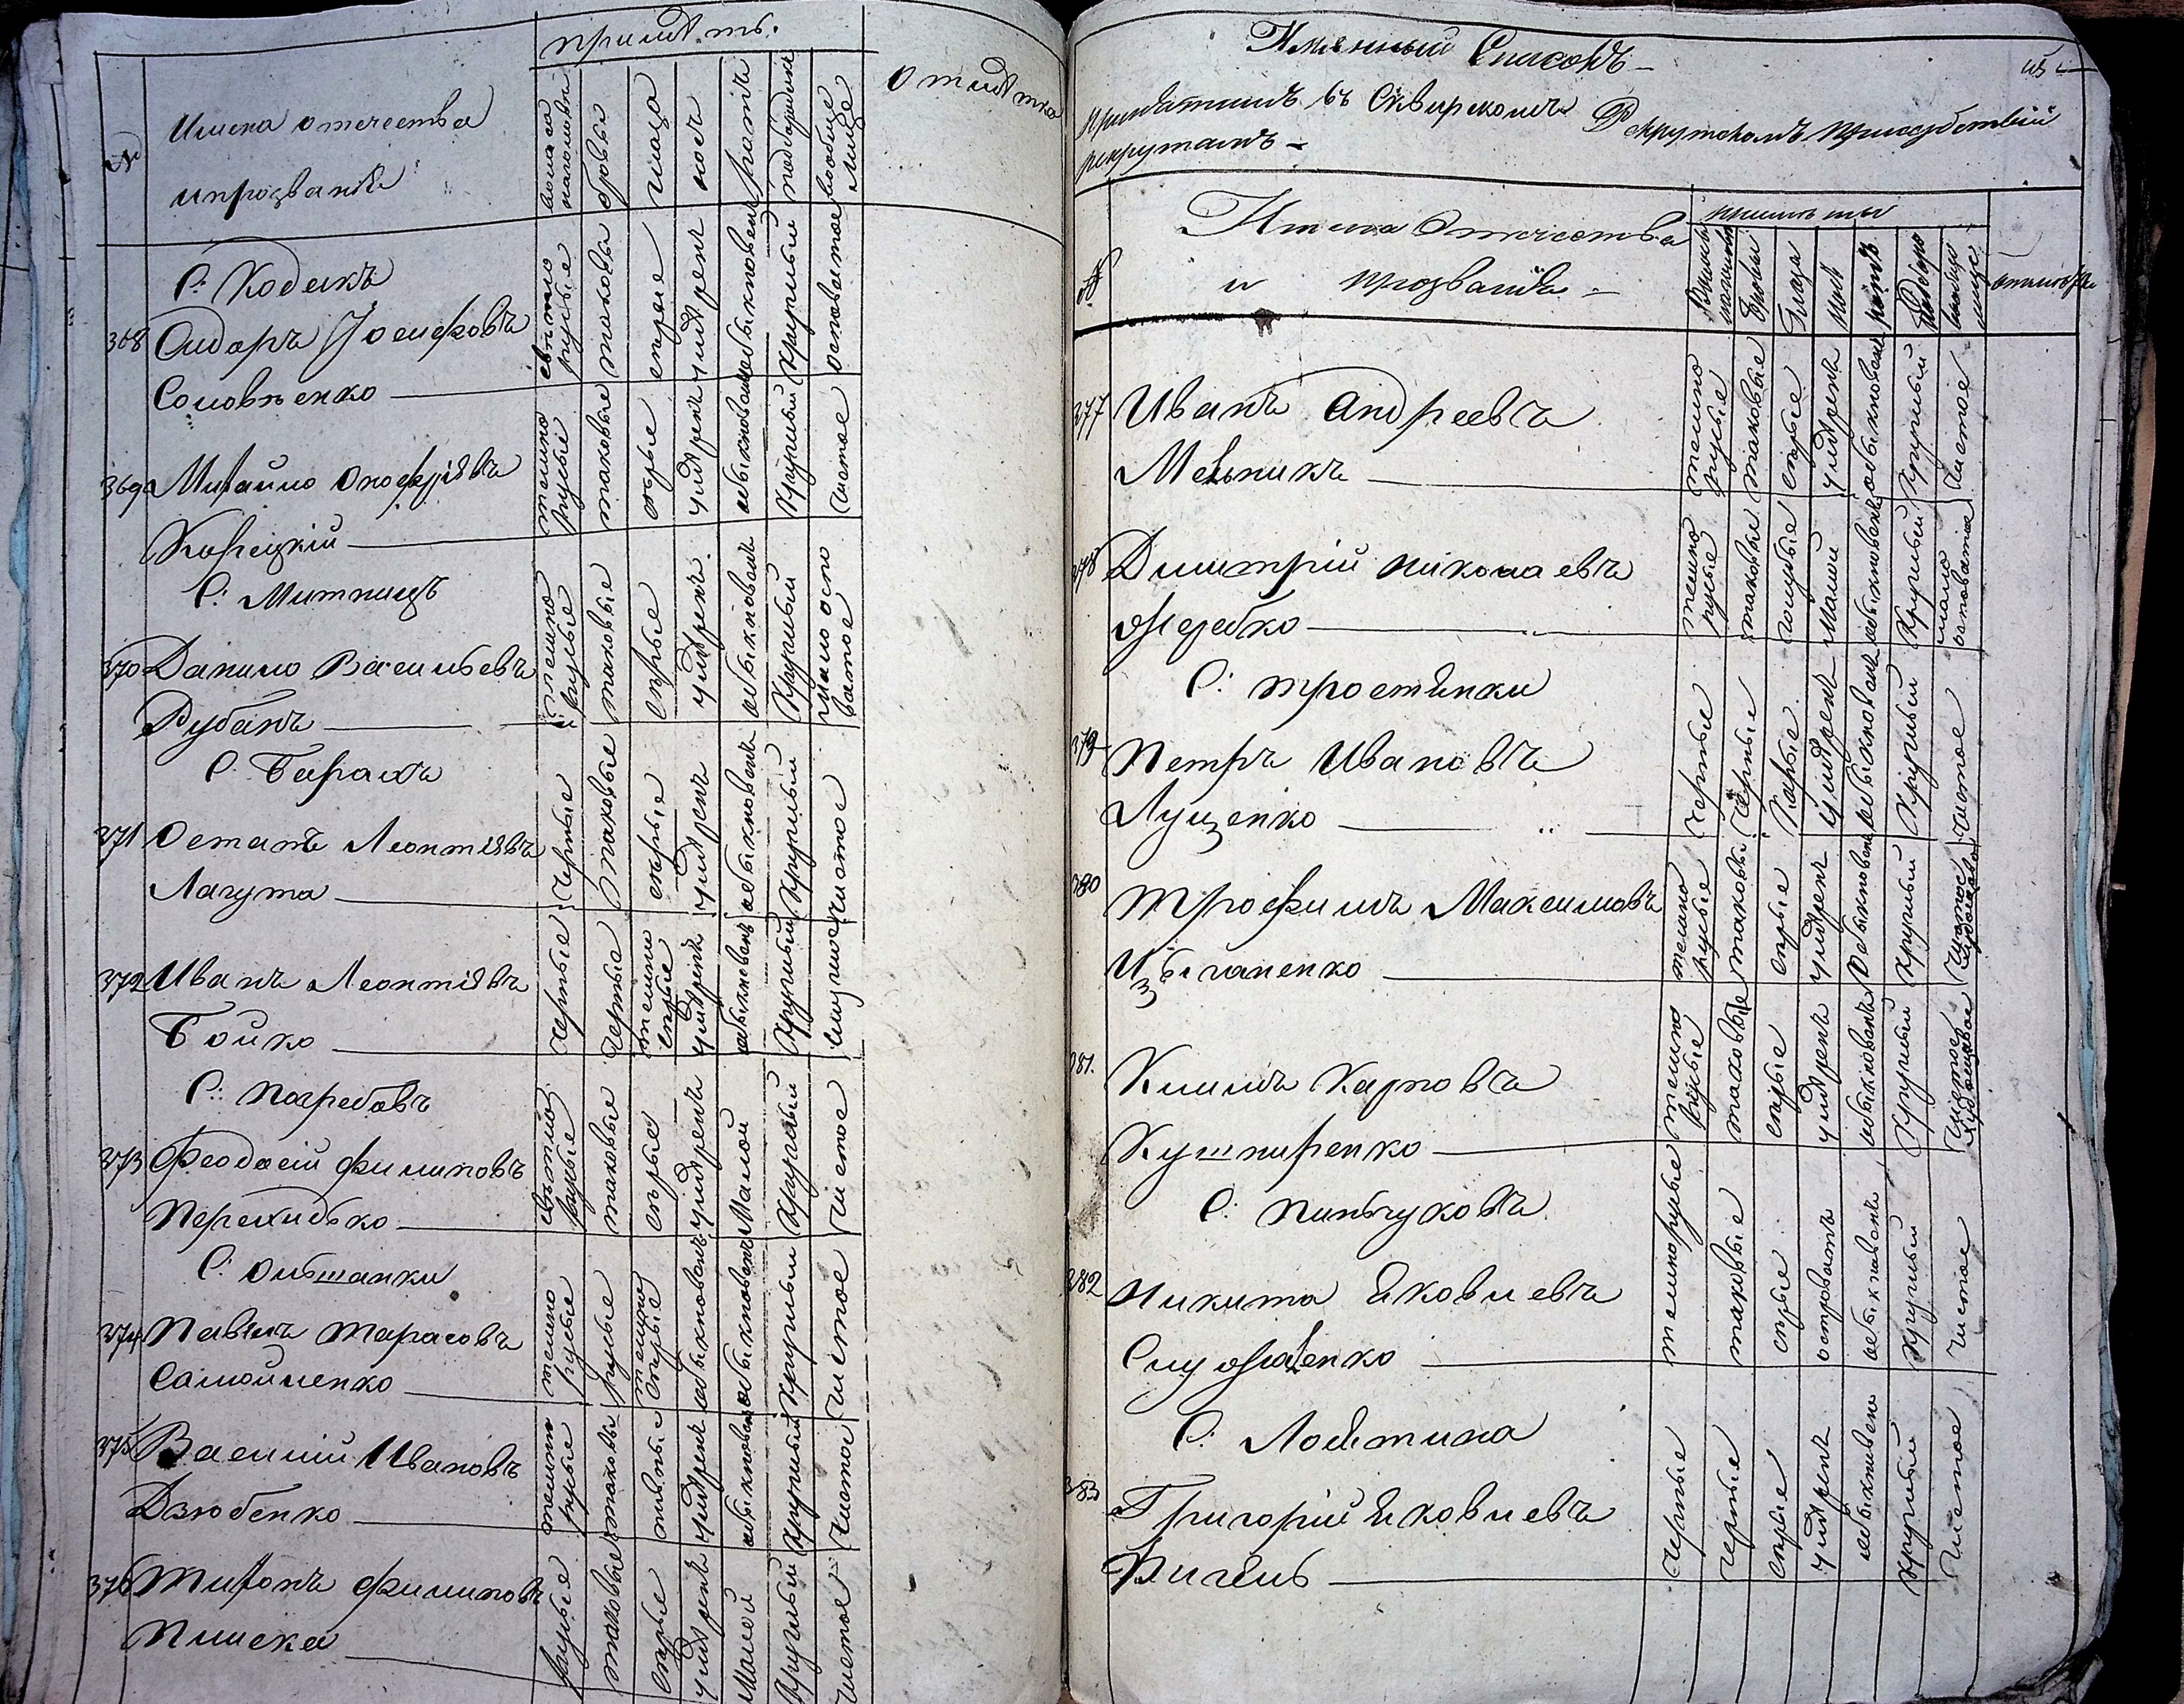 №
Имена отечества
и прозваніе
приметъ.
волоса на головы
бровы
глаза
носъ
ротъ
подбородокъ
вообще лице
отметка
С: Кодакъ
368 Сидоръ Іосифовъ
Соловьенко
светло русые
таковы
серые
умеренъ
обыкновенъ
круглый
осповатое
369 Михайло Онофріевъ
Корецкій
темно русые
таковые
серые
умеренъ
обыкновенъ
круглый
чистое
С: Митницъ
370 Данило Васильевъ
Рубанъ
темно русые
таковые
серые
умеренъ.
обыкновенъ
круглый
мало осповатое
С.
371 Остапъ Леонтіевъ
Лагута
черные
таковые
серые
умеренъ
обыкновенъ
круглый
чистое
372 Иванъ Леонтіевъ
Бойко
черные
черные
темно серые
умеренъ
обыкновенъ
круглый
С: Погребовъ
373 Феодосій Филиповъ
Перехидько
светло русые
таковые
серые
умеренъ
малой
круглый
чистое
С: Ольшанки
374 Павелъ Тарасовъ
Самойленко
темно русые
русые
темно серые
обыкновенъ
обыкновенъ
круглый
чистое
375 Василій Ивановъ
Дзюбенко
темно русые
таковы
умеренъ
обыкновенъ
круглый
чистое
376 Тихонъ Филиповъ
русые
таковые
серые
умеренъ
малой
круглый
чистое
Имянный Списокъ
принятымъ въ Сквирскомъ Рекрутскомъ присудствіи
рекрутамъ
№
Имена Отечества
и прозваніе
приметы
бровы
глаза
носъ
ротъ
вообще лице
отметка
377 Иванъ Андреевъ
Мельникъ
темно русые
таковые
серые
умеренъ
обыкновенъ
круглый
чистое
378 Дмитрій Николаевъ
Жеребко
темно русые
таковы
голубые
малы
обыкновенъ
круглый
мало осповатое
С: Тростянки
379 Петръ Ивановъ
Луценко
черные
черные
карые
умеренъ
обыкновенъ
круглый
чистое
380 Трофимъ Максимовъ
Цыганенко
темно русые
таковы
серые
умеренъ
обыкновенъ
круглый
чистое
381. Климъ Карповъ
Кушниренко
темно русые
таковые
серые
умеренъ
обыкновенъ
круглый
чистое
С: Пинчуковъ
382 Никита Яковлевъ
темнорусые
таковые
серые
островатъ
обыкновенъ
круглый
чистое
С: Лобятина
383 Григорій Яковлевъ
черные
черные
серые
умеренъ
обыкновенъ
круглый
чистое